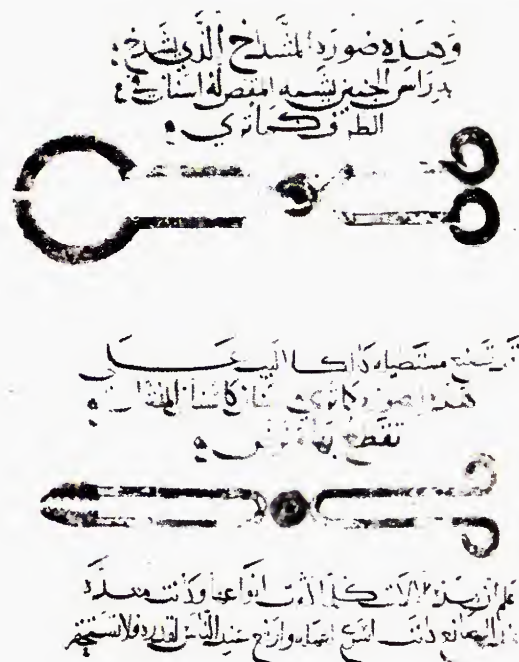 وهذه صورة المشداخ الذي يشدخ
به راس الجنين يشبه المقص له اسنان في
الطرف كما ترى
تصنع مستطيلة كالكلاليب على
هذه الصورة كما ترى اسنان كاسنان المنشار
تقطع بها وترض
ان هذه الالات كلما كثرت انواعها وكانت معدة
الصانع كانت اسرع لعمله وارفع عند الناس لقدره فلا تستحقر